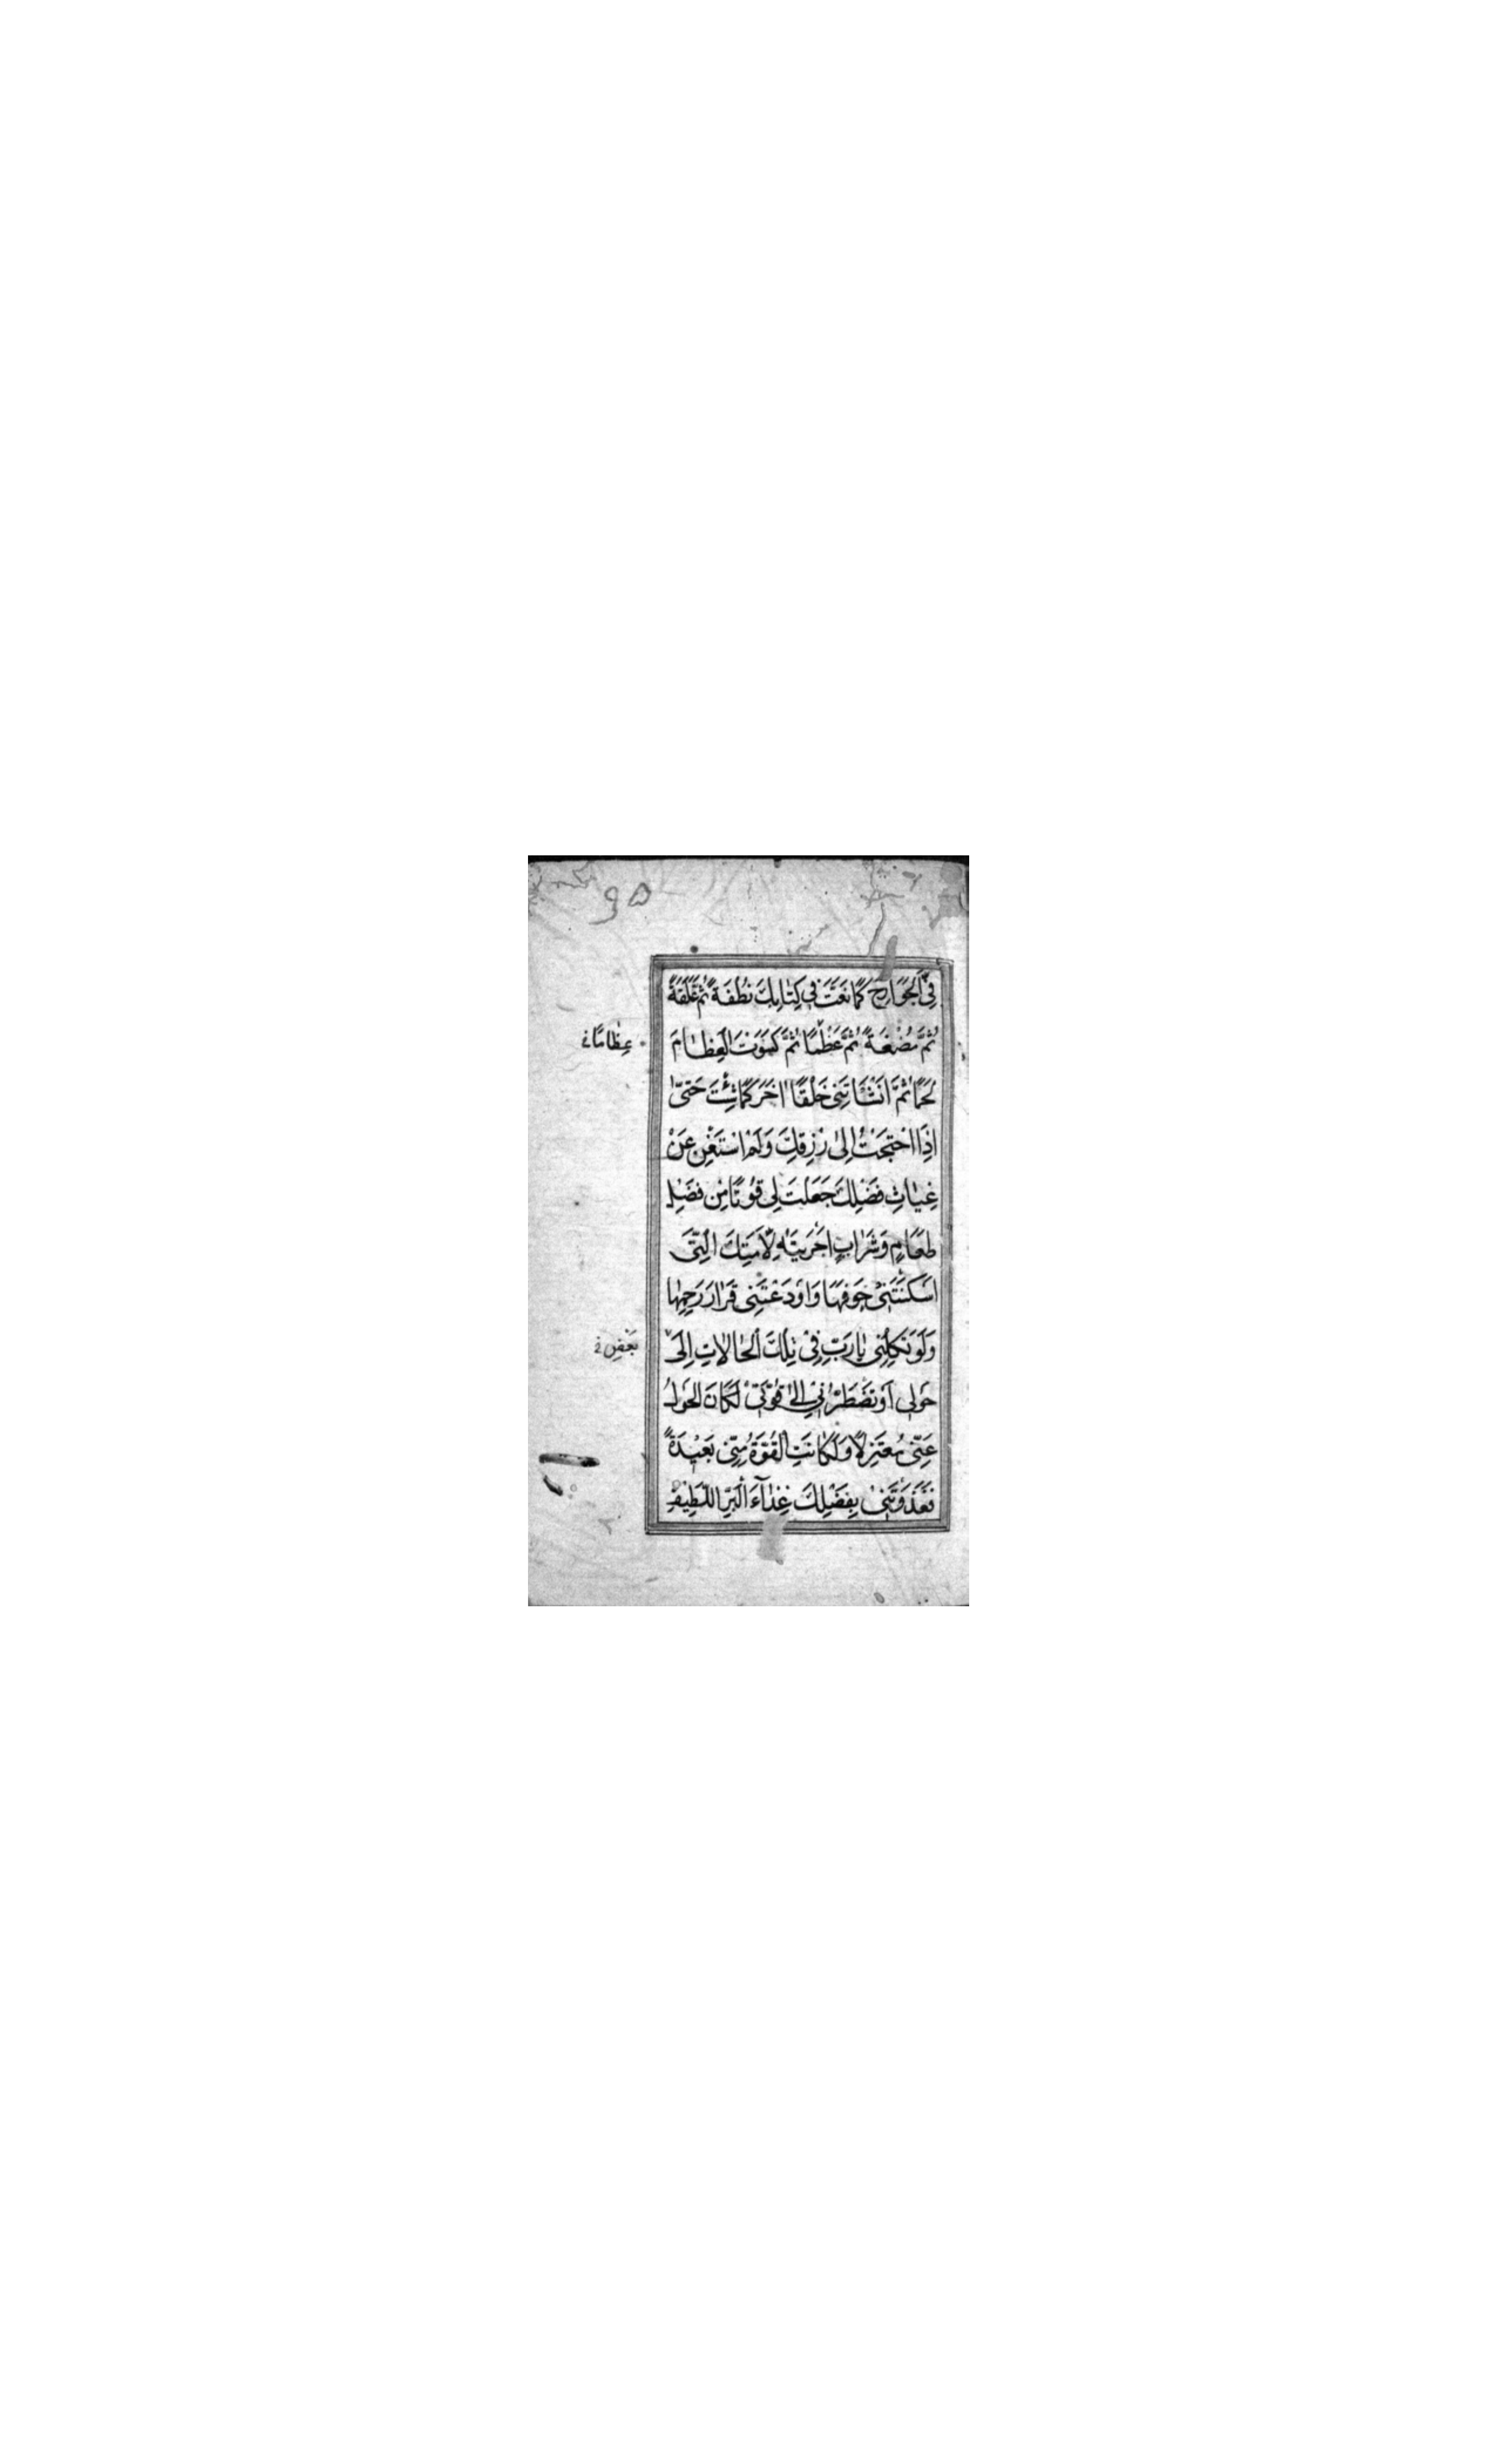 ۹۵
فِيَّ الْجَوَارِحَ كَمَا نَعَتَّ فِي كِتَابِكَ نُطْفَةً ثُمَّ عَلَقَةً
ثُمَّ مُضْغَةً ثُمَّ عَظْمًا ثُمَّ كَسَوْتَ الْعِظَامَ
عِظَامًا
لَحْمًا ثُمَّ اَنْشَاْتَنِي خَلْقًا اٰخَرَ كَمَا شِئْتَ حَتّٰى
اِذَا احْتَجْتُ اِلٰى رِزْقِكَ وَلَمْ اَسْتَغْنِ عَنْ
غِيَاثِ فَضْلِكَ جَعَلْتَ لِي قُوتًا مِنْ فَضْلِ
طَعَامٍ وَشَرَابٍ اَجْرَيْتَهُ لِاَمَتِكَ الَّتِي
اَسْكَنْتَنِي جَوْفَهَا وَاَوْدَعْتَنِي قَرَارَ رَحِمِهَا
وَلَوْ تَكِلْنِي يَا رَبِّ فِي تِلْكَ الْحَالَاتِ اِلٰى
حَوْلِي اَوْ تَضْطَرُّنِي اِلٰى قُوَّتِي لَكَانَ الْحَوْلُ
عَنِّي مُعْتَزِلًا وَلَكَانَتِ الْقُوَّةُ مِنِّي بَعِيدَةً
فَغَذَوْتَنِي بِفَضْلِكَ غِذَاءَ الْبَرِّ اللَّطِيفِ